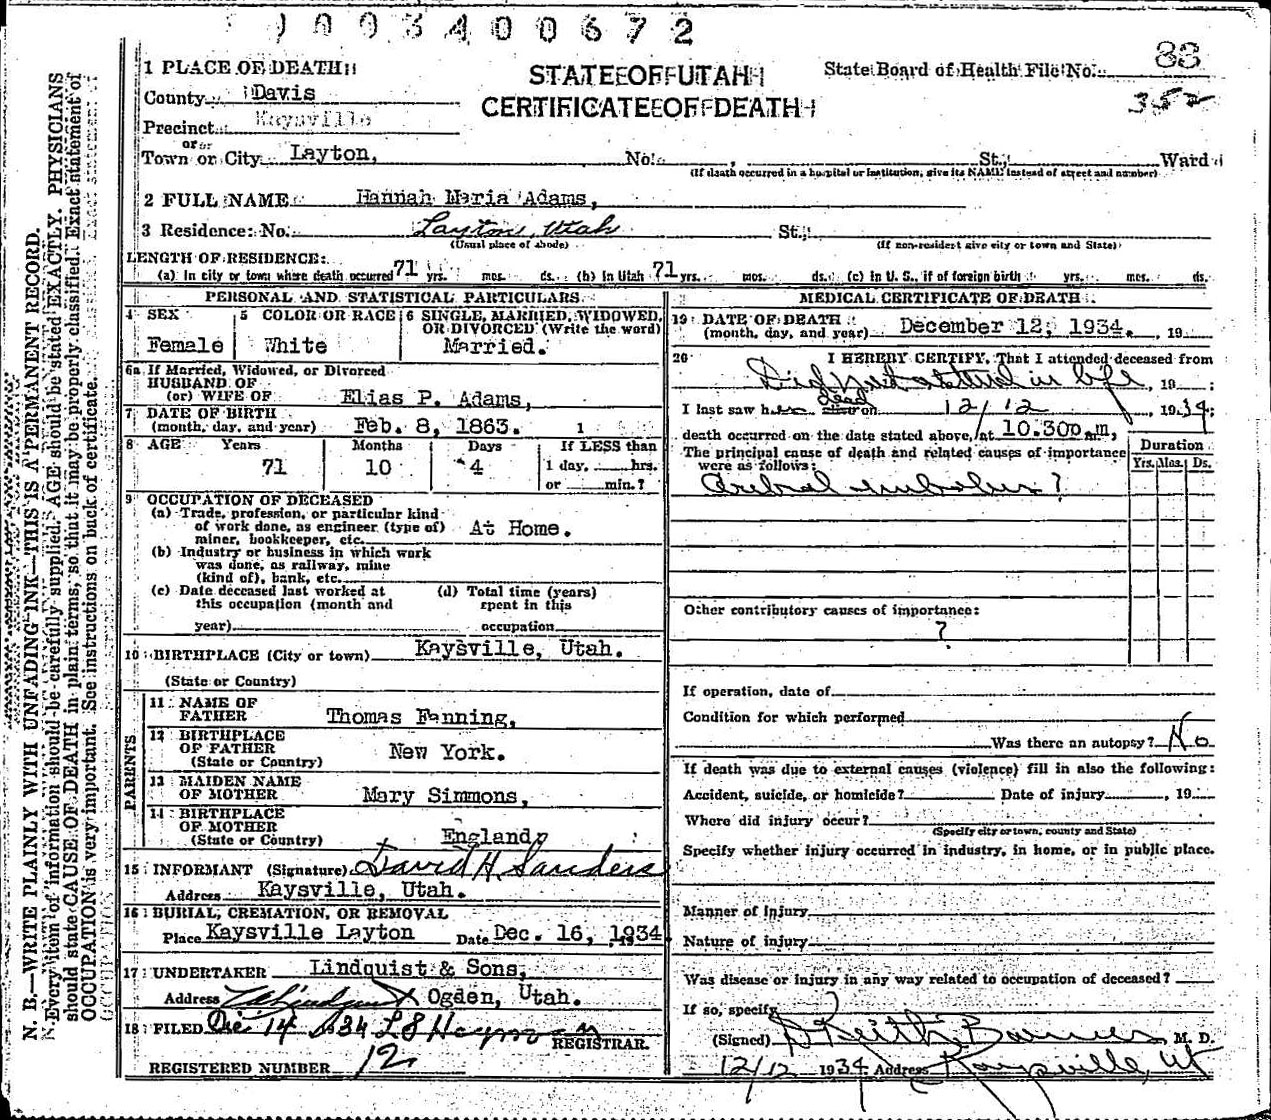 1 PLACE OF DEATH
County Davis
Precinct Kaysville
or
Town or City Layton,
No. , St., Ward
(If death occurred in a hospital or institution, give its NAME instead of street and number)
STATE OF UTAH
CERTIFICATE OF DEATH
State Board of Health File No. 83
352
2 FULL NAME Hannah Maria Adams,
3 Residence: No. Layton, Utah St.
(Usual place of abode) (If non-resident give city or town and State)
LENGTH OF RESIDENCE:
(a) In city or town where death occurred 71 yrs. mos. ds. (b) In Utah 71 yrs. mos. ds. (c) In U. S., if of foreign birth yrs. mos. ds.
PERSONAL AND STATISTICAL PARTICULARS
4 SEX
Female
5 COLOR OR RACE
White
6 SINGLE, MARRIED, WIDOWED,
OR DIVORCED (Write the word)
Married.
6a If Married, Widowed, or Divorced
HUSBAND OF
(or) WIFE OF Elias P. Adams,
7 DATE OF BIRTH
(month, day, and year) Feb. 8, 1863. 1
8 AGE Years Months Days If LESS than
71 10 4 1 day, hrs.
or min.?
9 OCCUPATION OF DECEASED
(a) Trade, profession, or particular kind
of work done, as engineer (type of)
miner, bookkeeper, etc. At Home.
(b) Industry or business in which work
was done, as railway, mine
(kind of), bank, etc.
(c) Date deceased last worked at
this occupation (month and
year)
(d) Total time (years)
spent in this
occupation
10 BIRTHPLACE (City or town) Kaysville, Utah.
(State or Country)
PARENTS
11 NAME OF
FATHER Thomas Fanning,
12 BIRTHPLACE
OF FATHER New York.
(State or Country)
13 MAIDEN NAME
OF MOTHER Mary Simmons,
14 BIRTHPLACE
OF MOTHER
(State or Country) England
15 INFORMANT (Signature) David H. Sanders
Address Kaysville, Utah.
16 BURIAL, CREMATION, OR REMOVAL
Place Kaysville Layton Date Dec. 16, 1934
17 UNDERTAKER Lindquist & Sons,
Address Ogden, Utah.
18 FILED Dec 14 1934 L S Heyman
REGISTRAR.
REGISTERED NUMBER 12
MEDICAL CERTIFICATE OF DEATH
19 DATE OF DEATH
(month, day, and year) December 12, 1934. , 19
20 I HEREBY CERTIFY, That I attended deceased from
Did not attend in life , 19 ;
I last saw her dead on 12/12 , 1934;
death occurred on the date stated above, at 10.30p m,
The principal cause of death and related causes of importance
were as follows:
Duration
Yrs. Mos. Ds.
Cerebral embolus ?
Other contributory causes of importance:
?
If operation, date of
Condition for which performed
Was there an autopsy? No
If death was due to external causes (violence) fill in also the following:
Accident, suicide, or homicide? Date of injury , 19
Where did injury occur?
(Specify city or town, county and State)
Specify whether injury occurred in industry, in home, or in public place.
Manner of Injury
Nature of injury
Was disease or injury in any way related to occupation of deceased?
If so, specify
(Signed) D Keith Barnes M. D.
12/12 1934 Address Kaysville, Ut
N. B.—WRITE PLAINLY WITH UNFADING INK—THIS IS A PERMANENT RECORD.
Every item of information should be carefully supplied. AGE should be stated EXACTLY. PHYSICIANS
should state CAUSE OF DEATH in plain terms, so that it may be properly classified. Exact statement of
OCCUPATION is very important. See instructions on back of certificate.